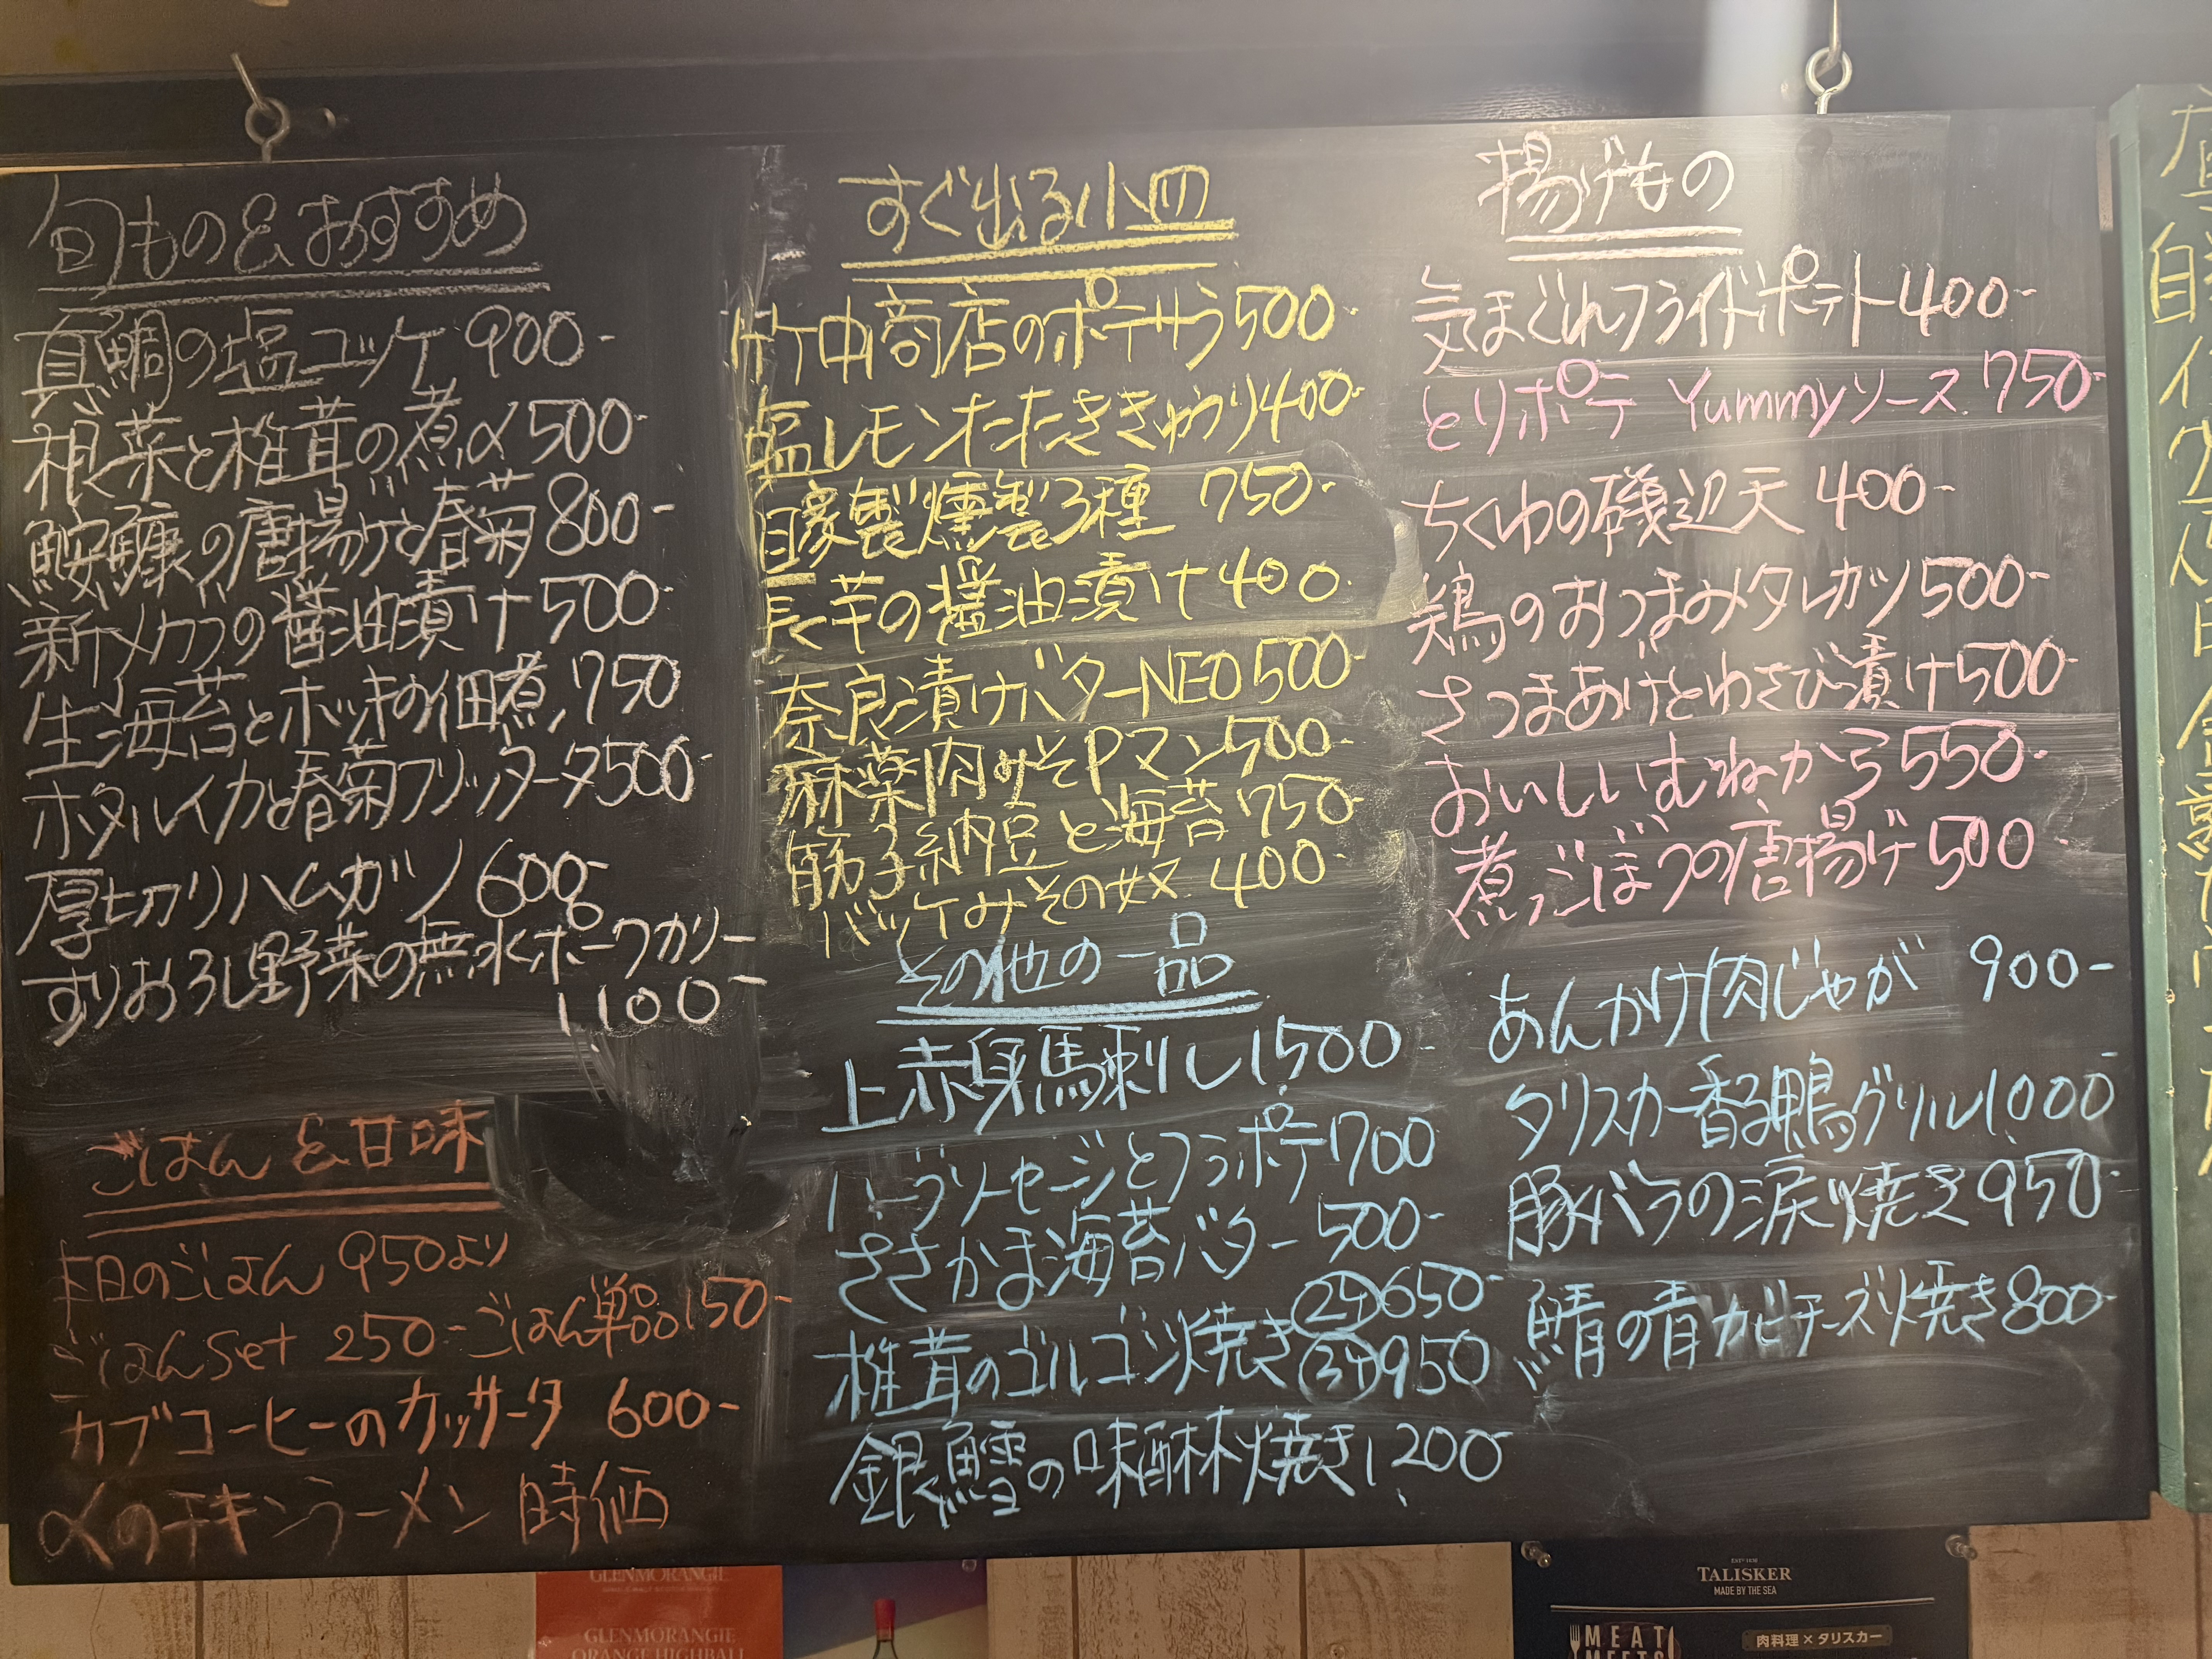 旬もの&おすすめ
真鯛の塩ユッケ 900-
根菜と椎茸の煮〆 500-
鮟鱇の唐揚げと春菊 800-
新メカブの醤油漬け 500-
生海苔とホッキの佃煮 750
ホタルイカと春菊フリッター 500-
厚切りハムカツ 600-
すりおろし野菜の無水ポークカリー
1100-
ごはん&甘味
本日のごはん 950より
ごはんset 250- ごはん単品 150-
カブコーヒーのカッサータ 600-
〆のチキンラーメン 時価
すぐ出る小皿
竹中商店のポテサラ 500-
塩レモンたたききゅうり 400-
自家製燻製3種 750-
長芋の醤油漬け 400-
奈良漬けバターNEO 500-
麻薬肉みそPマン 500-
筋子納豆と海苔 750-
バッケみその奴 400-
その他の一品
上赤身馬刺し 1500-
ハーブソーセージとフラポテ 1700
ささかま海苔バター 500-
椎茸のゴルゴンゾ焼き
2ケ 650-
3ケ 950
銀鱈の味醂焼き 1,200-
揚げもの
気まぐれフライドポテト 400-
とりポテ Yummyソース 750-
ちくわの磯辺天 400-
鶏のおつまみタレカツ 500-
さつまあげとわさび漬け 500-
おいしいむねから 550-
煮ごぼうの唐揚げ 500-
あんかけ肉じゃが 900-
タリスカー香る鴨グリル 1,000-
豚バラの涙焼き 950-
鯖の青カビチーズ焼き 800-
GLENMORANGIE
GLENMORANGIE
ORANGE HIGHBALL
TALISKER
MADE BY THE SEA
MEAT
MEETS
肉料理×タリスカー